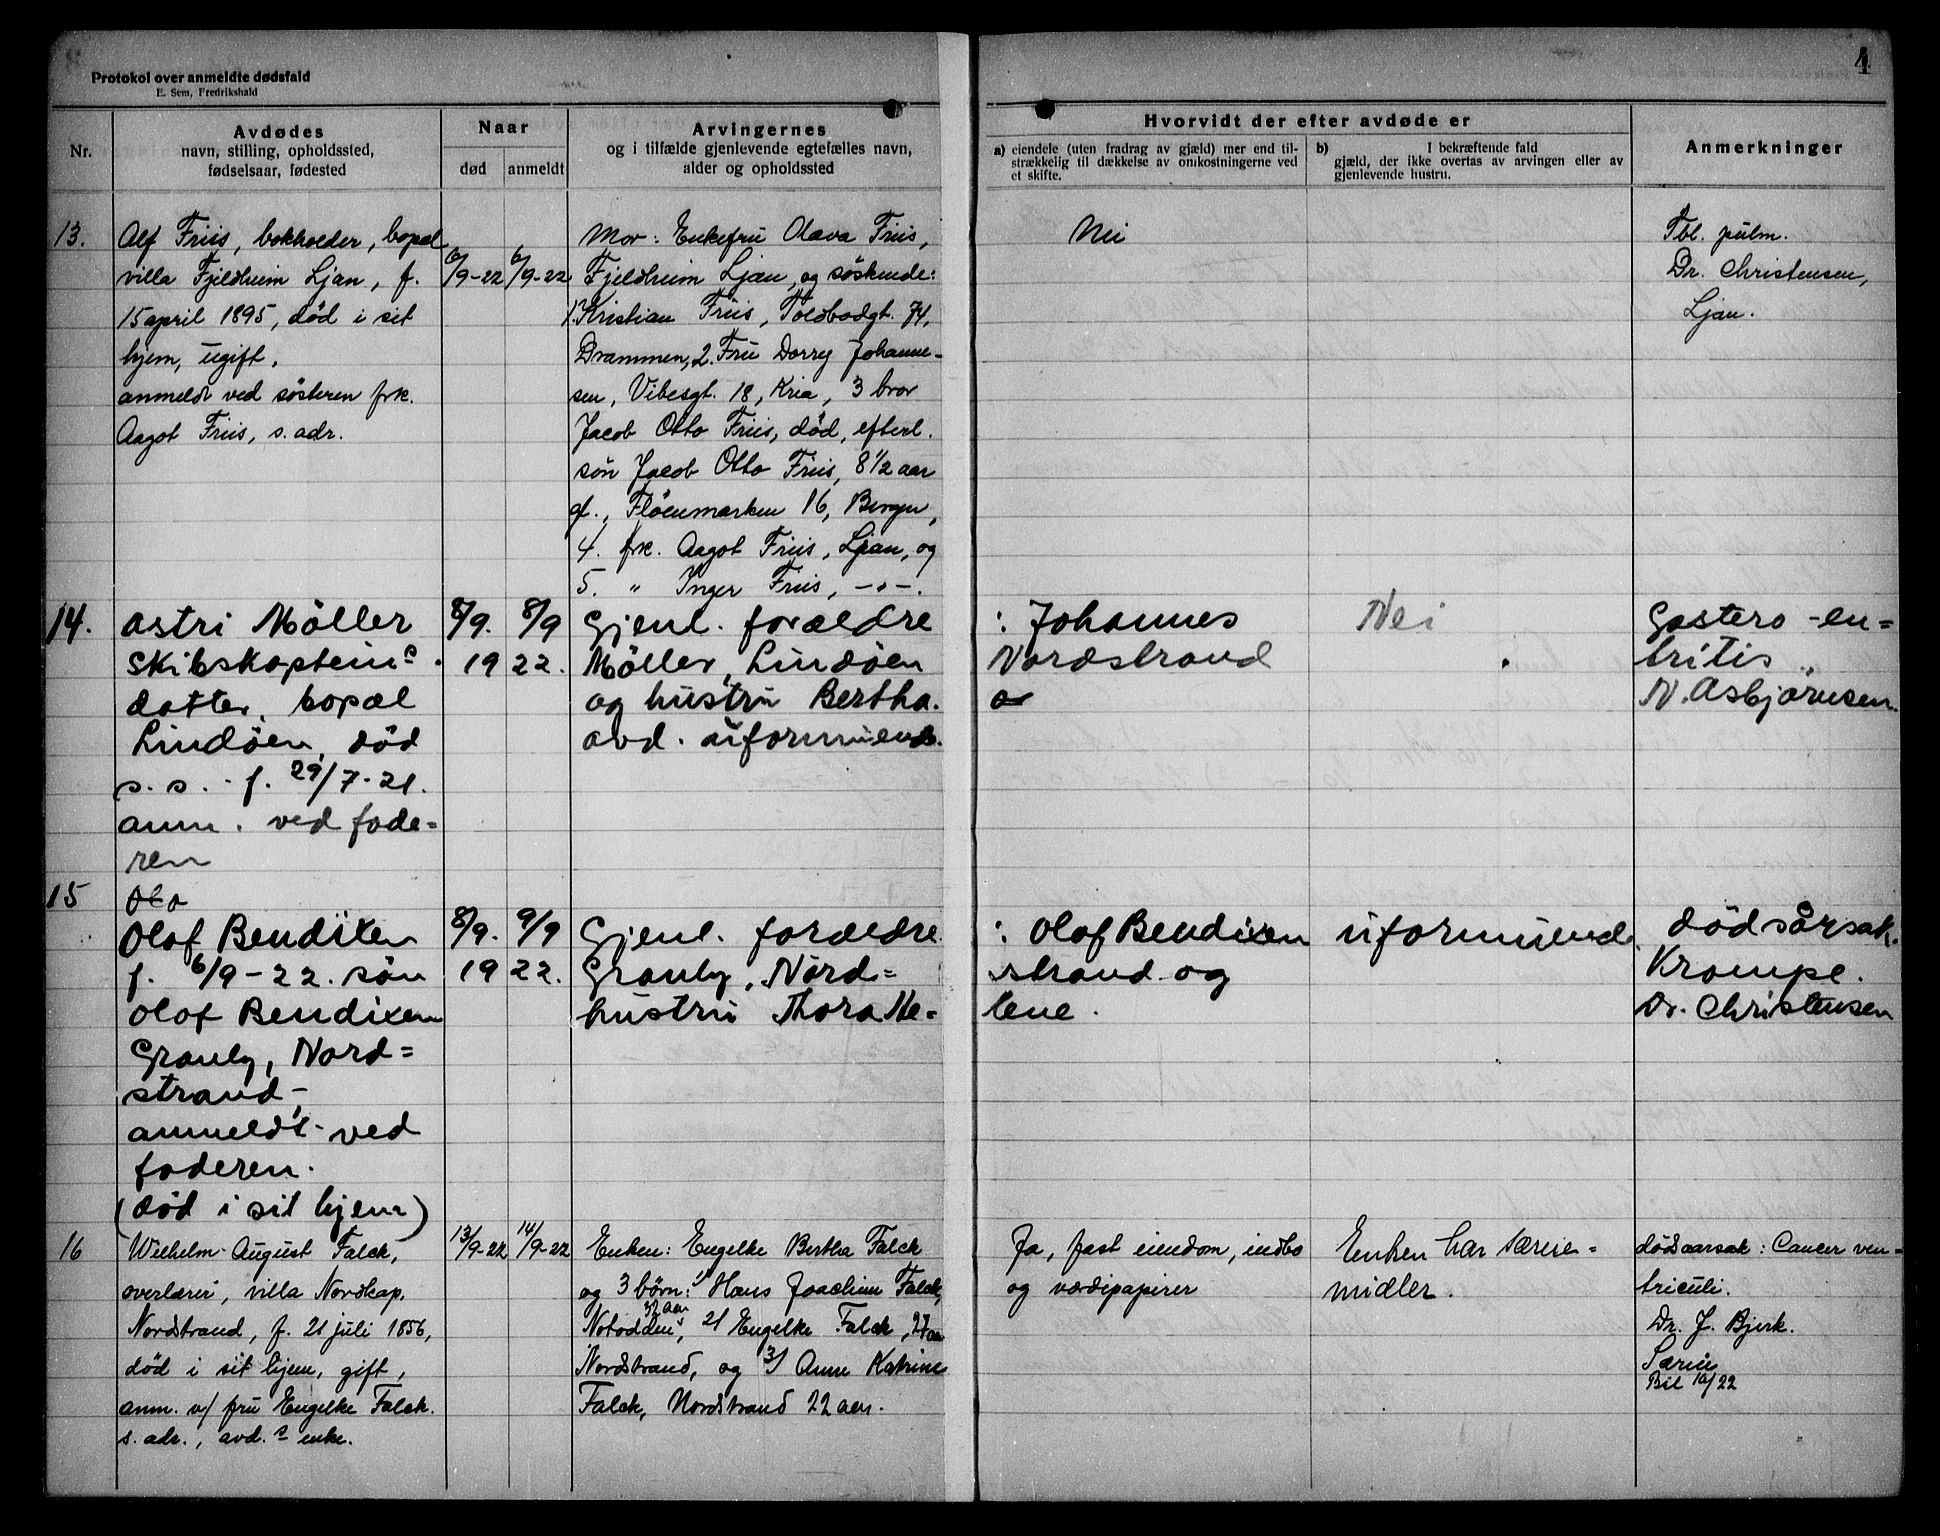 4
Protokol over anmeldte dødsfald
E. Sem, Fredrikshald
Nr.
Avdødes
navn, stilling, opholdssted,
fødselsaar, fødested
Naar
død
anmeldt
Arvingernes
og i tilfælde gjenlevende egtefælles navn,
alder og opholdssted
Hvorvidt der efter avdøde er
a) eiendele (uten fradrag av gjæld) mer end til-
strækkelig til dækkelse av omkostningerne ved
et skifte.
b) I bekræftende fald
gjæld, der ikke overtas av arvingen eller av
gjenlevende hustru.
Anmerkninger
13.
Alf Friis, bokholder, bopæl
villa Fjeldheim Ljan, f.
15 april 1895, død i sit
hjem, ugift.
anmeldt ved søsteren frk.
Aagot Friis, s. adr.
6/9-22
6/9-22
Mor: Enkefru Olava Friis,
Fjeldheim Ljan, og søskende:
1. Kristian Friis, Toldbodgt. 74,
Drammen, 2. Fru Dorry Johanne-
sen, Vibesgt. 18, Kria, 3 bror
Jacob Otto Friis, død, efterl.
søn Jacob Otto Friis, 8 1/2 aar
gl., Fløenmarken 16, Bergen,
4. frk. Aagot Friis, Ljan, og
5. " Inger Friis, -"-.
Nei
Tbl. pulm.
Dr. Christensen,
Ljan.
14.
Astri Møller
skibskapteins
datter, bopæl
Lindøen, død
s. s. - f. 29/7-21.
anm. ved fade=
ren
8/9. 8/9
19 22.
Gjenl. forældre
Møller, Lindøen
og hustru Bertha.
avd. uformuende.
: Johannes
Nordstrand
Nei
Gastero-en=
tritis
N. Asbjørnsen.
15
Olaf Bendixen
f. 6/9-22. søn
Olaf Bendixen
Granly, Nord=
strand-
anmeldt ved
faderen.
(død i sit hjem)
8/9. 9/9
19 22.
Gjenl. forældre
Granly, Nord=
hustru Thora He=
: Olaf Bendixen
strand og
lene.
uformuende.
dødsårsak.
Krampe.
Dr. Christensen
16
Wilhelm August Falck,
overlærer, villa Nordkap,
Nordstrand, f. 21 juli 1856,
død i sit hjem, gift,
anm. v/ fru Engelke Falck.
s. adr., avd.s enke.
13/9-22
14/9-22
Enken: Engelke Bertha Falck
og 3 børn: 1/ Hans Joachim Falck,
32 aar
Notodden, 2/ Engelke Falck, 27 aar
Nordstrand, og 3/ Anne Katrine
Falck, Nordstrand 22 aar.
Ja, fast eiendom, indbo
og værdipapirer
Enken har særeie-
midler.
dødsaarsak: Cancer ven-
triculi.
Dr. J. Bjerk.
Særeie
Bil 10/22